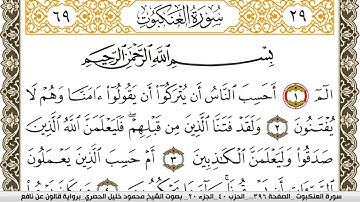 ٢٩ سُورَةُ العَنكَبُوتِ ٦٩
بِسْمِ اللَّهِ الرَّحْمَٰنِ الرَّحِيمِ
الٓمٓ ١ أَحَسِبَ النَّاسُ أَن يُتْرَكُوٓا أَن يَقُولُوٓا ءَامَنَّا وَهُمْ لَا
يُفْتَنُونَ ٢ وَلَقَدْ فَتَنَّا الَّذِينَ مِن قَبْلِهِمْ فَلَيَعْلَمَنَّ اللَّهُ الَّذِينَ
صَدَقُوا وَلَيَعْلَمَنَّ الْكَٰذِبِينَ ٣ أَمْ حَسِبَ الَّذِينَ يَعْمَلُونَ
سورة العنكبوت _ الصفحة ٣٩٦_ الحزب ٤٠_ الجزء ٢٠_ بصوت الشيخ محمود خليل الحصري_ برواية قالون عن نافع